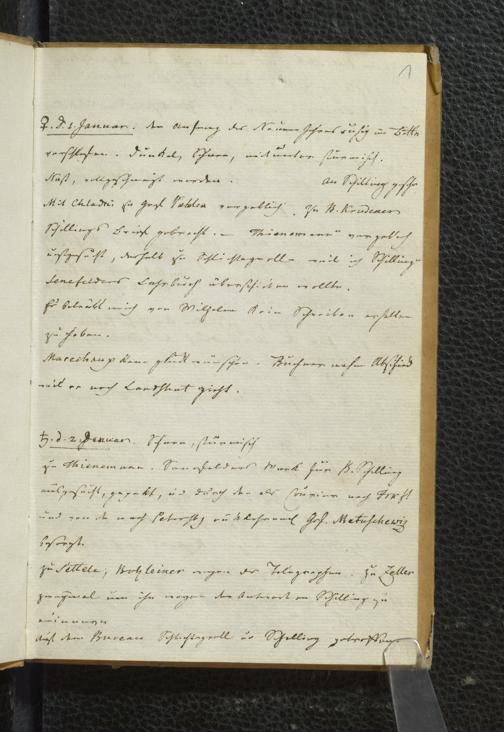 1
♀. d. 1 Januar. den Anfang des Neuen Jahres ruhig im Bette
verschlafen. Dunkel, Schnee, mitunter stürmisch.
Naß, worden. An Schilling geschr
Mit Chladni zu Graf vergeblich. Zu B. Krüdener
Schillings Brief gebracht. – Thienemann vergeblich
aufgesucht, deshalb zu Schlichtegroll weil ich Schilling
Senefelders Lehrbuch überschicken wollte.
Es betrübt mich von Wilhelm kein Schreiben erhalten
zu haben.
Marechaux kam glückwünschen. Buchner nahm Abschied
weil er nach Landshut geht.
♄. d. 2 Januar. Schnee, stürmisch
zu Thienemann. Senefelders Werk für B. Schilling
ausgesucht, gepakt, und durch den als Courier nach Frkft
und von da nach Petersbg Grf. Matuschewiz
besorgt.
zu Settele, wegen des Telegraphen. Zu Zeller
zweymal um ihn wegen der Antwort an Schilling zu
erinnern
Auf dem Bureau Schlichtegroll und Schelling getroffen